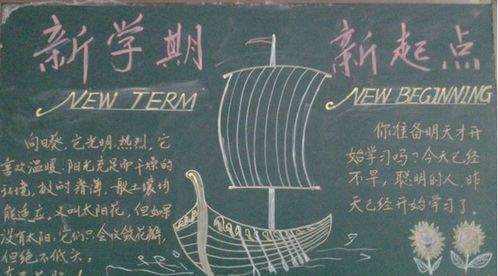 新学期
新起点
NEW TERM
NEW BEGINNING
向日葵,它光明,热烈,它
喜欢温暖、阳光充足而干燥的
环境,极耐脊薄,一般土壤均
能适应,又叫太阳花,但如果
没有太阳,它们只会收敛花瓣,
但绝不低头,
你准备明天才开
始学习吗?今天已经
不早,聪明的人,昨
天已经开始学习了。